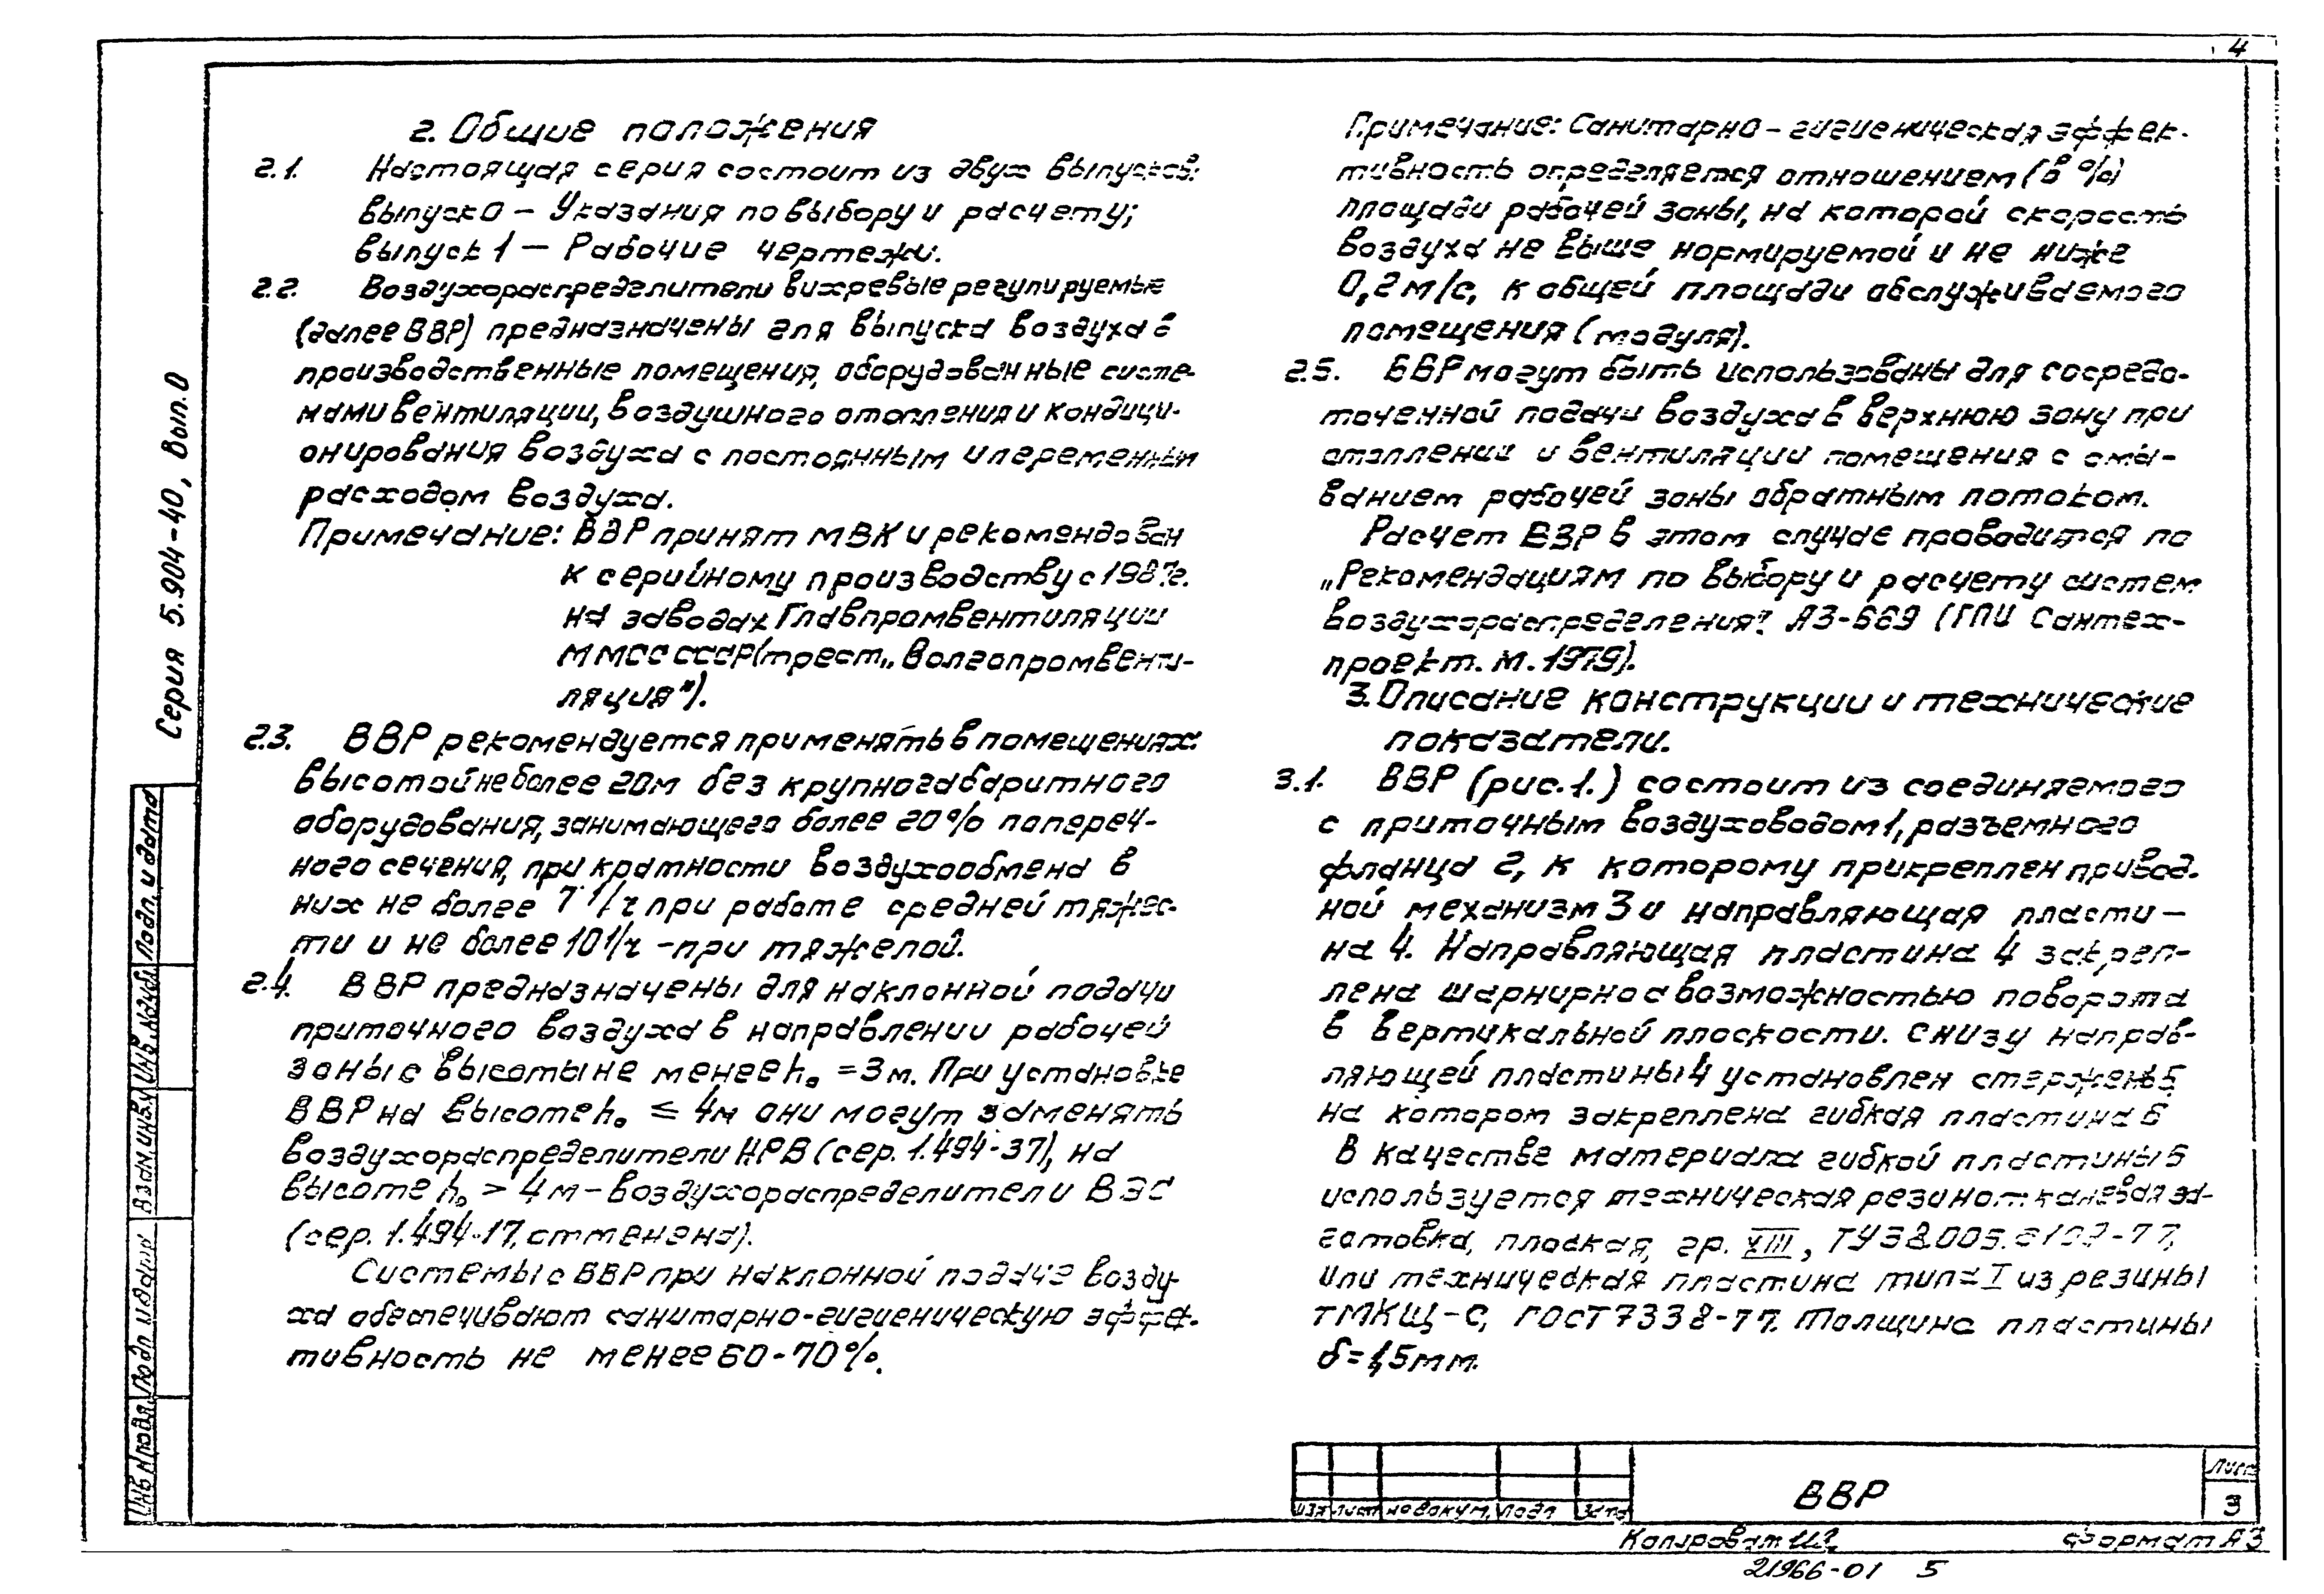 4
2. Общие положения
2.1. Настоящая серия состоит из двух выпусков:
выпуск 0 – Указания по выбору и расчету;
выпуск 1 – Рабочие чертежи.
2.2. Воздухораспределители вихревые регулируемые
(далее ВВР) предназначены для выпуска воздуха в
производственные помещения, оборудованные систе-
мами вентиляции, воздушного отопления и кондици-
онирования воздуха с постоянным и переменным
расходом воздуха.
Примечание: ВВР принят МВК и рекомендован
к серийному производству с 1987г.
на заводах Главпромвентиляции
ММСС СССР (трест „Волгопромвенти-
ляция").
2.3. ВВР рекомендуется применять в помещениях
высотой не более 20м без крупногабаритного
оборудования, занимающего более 20% попереч-
ного сечения, при кратности воздухообмена в
них не более 7 1/ч при работе средней тяжес-
ти и не более 10 1/ч – при тяжелой.
2.4. ВВР предназначены для наклонной подачи
приточного воздуха в направлении рабочей
зоны с высоты не менее h₀ = 3м. При установке
ВВР на высоте h₀ ≤ 4м они могут заменять
воздухораспределители НРВ (сер. 1.494-37), на
высоте h₀ > 4м – воздухораспределители ВЭС
(сер. 1.494-17, отменена).
Системы с ВВР при наклонной подаче возду-
ха обеспечивают санитарно-гигиеническую эффек-
тивность не менее 60-70%.
Примечание: Санитарно – гигиеническая эффек-
тивность определяется отношением (в %)
площади рабочей зоны, на которой скорость
воздуха не выше нормируемой и не ниже
0,2 м/с, к общей площади обслуживаемого
помещения (модуля).
2.5. ВВР могут быть использованы для сосредо-
точенной подачи воздуха в верхнюю зону при
отоплении и вентиляции помещения с омы-
ванием рабочей зоны обратным потоком.
Расчет ВВР в этом случае проводится по
„Рекомендациям по выбору и расчету систем
воздухораспределения". А3-669 (ГПИ Сантех-
проект. М. 1979).
3. Описание конструкции и технические
показатели.
3.1. ВВР (рис. 1.) состоит из соединяемого
с приточным воздуховодом 1, разъемного
фланца 2, к которому прикреплен привод-
ной механизм 3 и направляющая пласти –
на 4. Направляющая пластина 4 закреп-
лена шарнирно с возможностью поворота
в вертикальной плоскости. Снизу направ-
ляющей пластины 4 установлен стержень 5
на котором закреплена гибкая пластина 6
В качестве материала гибкой пластины 6
используется техническая резинотканевая за-
готовка, плоская, гр. XIII, ТУ38.005.
или техническая пластина типа I из резины
ТМКЩ-С, ГОСТ 7338-77. Толщина пластины
δ = 1,5мм.
Серия 5.904-40, Вып. 0
Подп. и дата
Инв. № дубл.
Взам. инв. №
Подп. и дата
Инв. № подл.
Изм Лист № докум. Подп Дата
ВВР
Лист
3
Копировал
Формат А3
21966-01 5